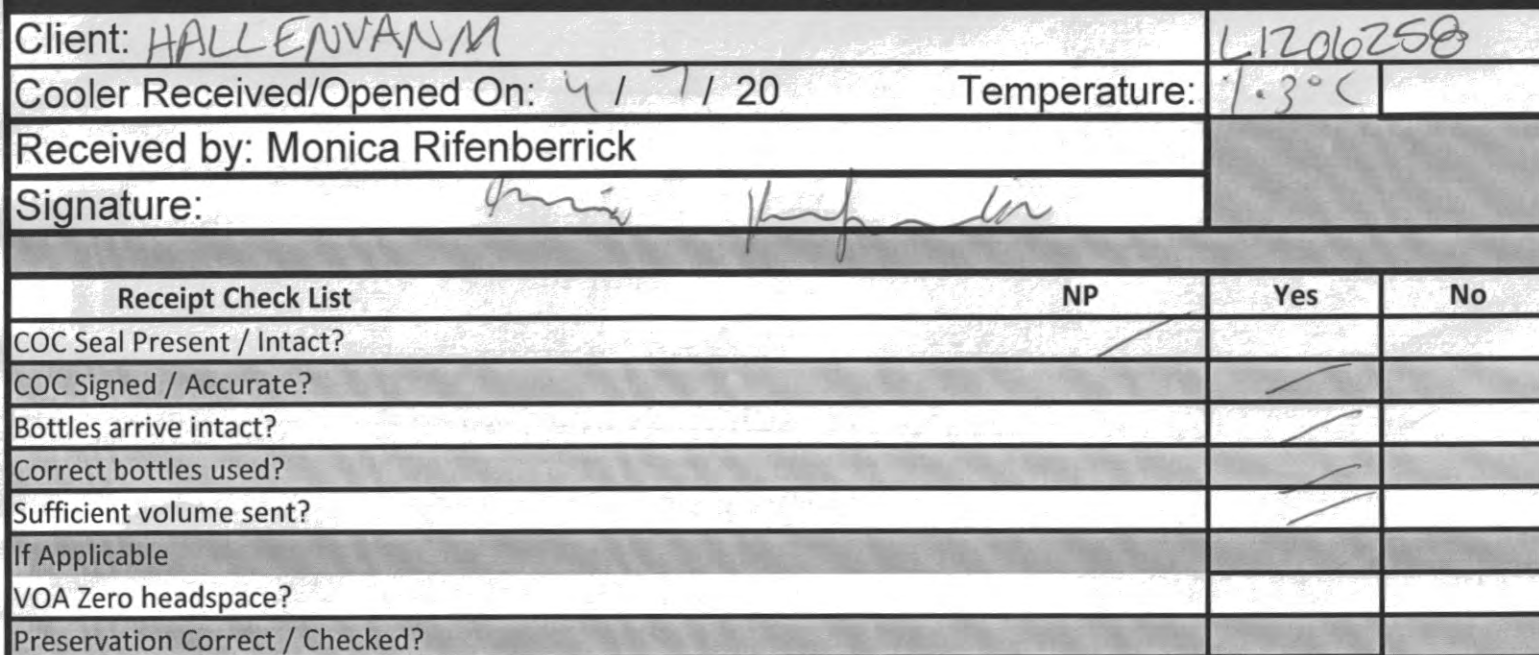 Client: HALLENVANM L1206258
Cooler Received/Opened On: 4 / 7 / 20 Temperature: 1.3°C
Received by: Monica Rifenberrick
Signature:
Receipt Check List NP Yes No
COC Seal Present / Intact?
COC Signed / Accurate?
Bottles arrive intact?
Correct bottles used?
Sufficient volume sent?
If Applicable
VOA Zero headspace?
Preservation Correct / Checked?